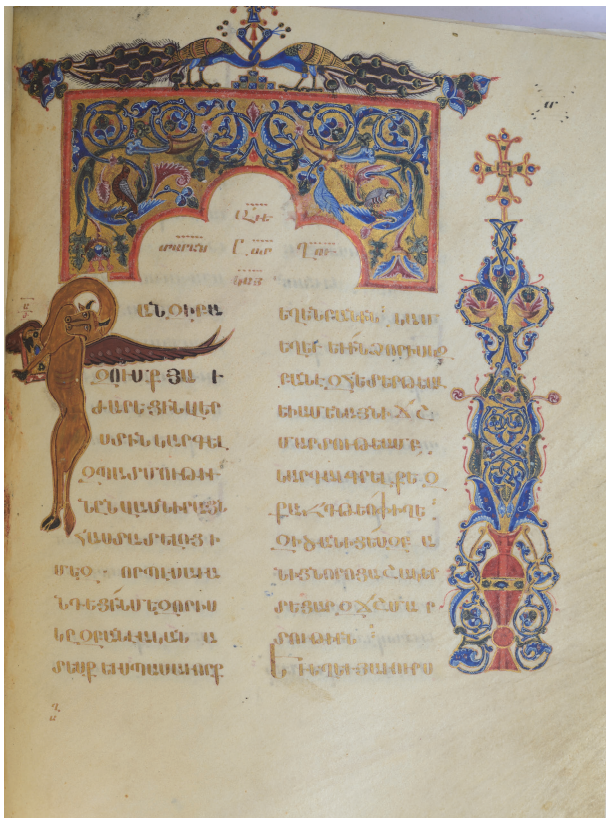 ԱՒԵ
ՏԱՐԱՆ ԸՍՏ ՂՈՒ
ԿԱՅ
ՔԱՆԶԻ ԲԱ
ԶՈՒՄՔ ՅԱՒ
ԺԱՐԵՑԻՆ ՎԵՐ
ՍՏԻՆ ԿԱՐԳԵԼ
ԶՊԱՏՄՈՒԹԻ
ՒՆ ՎԱՍՆ ԻՐԱՑՆ
ՀԱՍՏԱՏԵԼՈՑ Ի
ՄԵԶ ՈՐՊԷՍ ԱՒԱ
ՆԴԵՑԻՆ ՄԵԶ ՈՐ Ի Ս
ԿԶԲԱՆԷ ԱԿԱՆԱ
ՏԵՍՔ ԵՒ ՍՊԱՍԱՒՈՐՔ
ԵՂԵՆ ԲԱՆԻՆ՝ ԿԱՄ
ԵՂԵՒ ԵՒ ԻՆՁ ՈՐ Ի ՍԿԶ
ԲԱՆԷ ԶՀԵՏ ԵՐԹԵԱԼ
ԷԻ ԱՄԵՆԱՅՆԻ ՃՇ
ՄԱՐՏՈՒԹԵԱՄԲ
ԿԱՐԳԱՒ ԳՐԵԼ ՔԵԶ
ՔԱՋԴ ԹԷՈՓԻՂԷ
ԶԻ ԾԱՆԻՑԵՍ ԶԲԱ
ՆԻՑՆ ՈՐՈՑ ԱՇԱԿԵՐ
ՏԵՑԱՐ ԶՃՇՄԱՐ
ՏՈՒԹԻՒՆ
ԵՒ ԵՂԵՒ ՅԱՒՈՒՐՍ